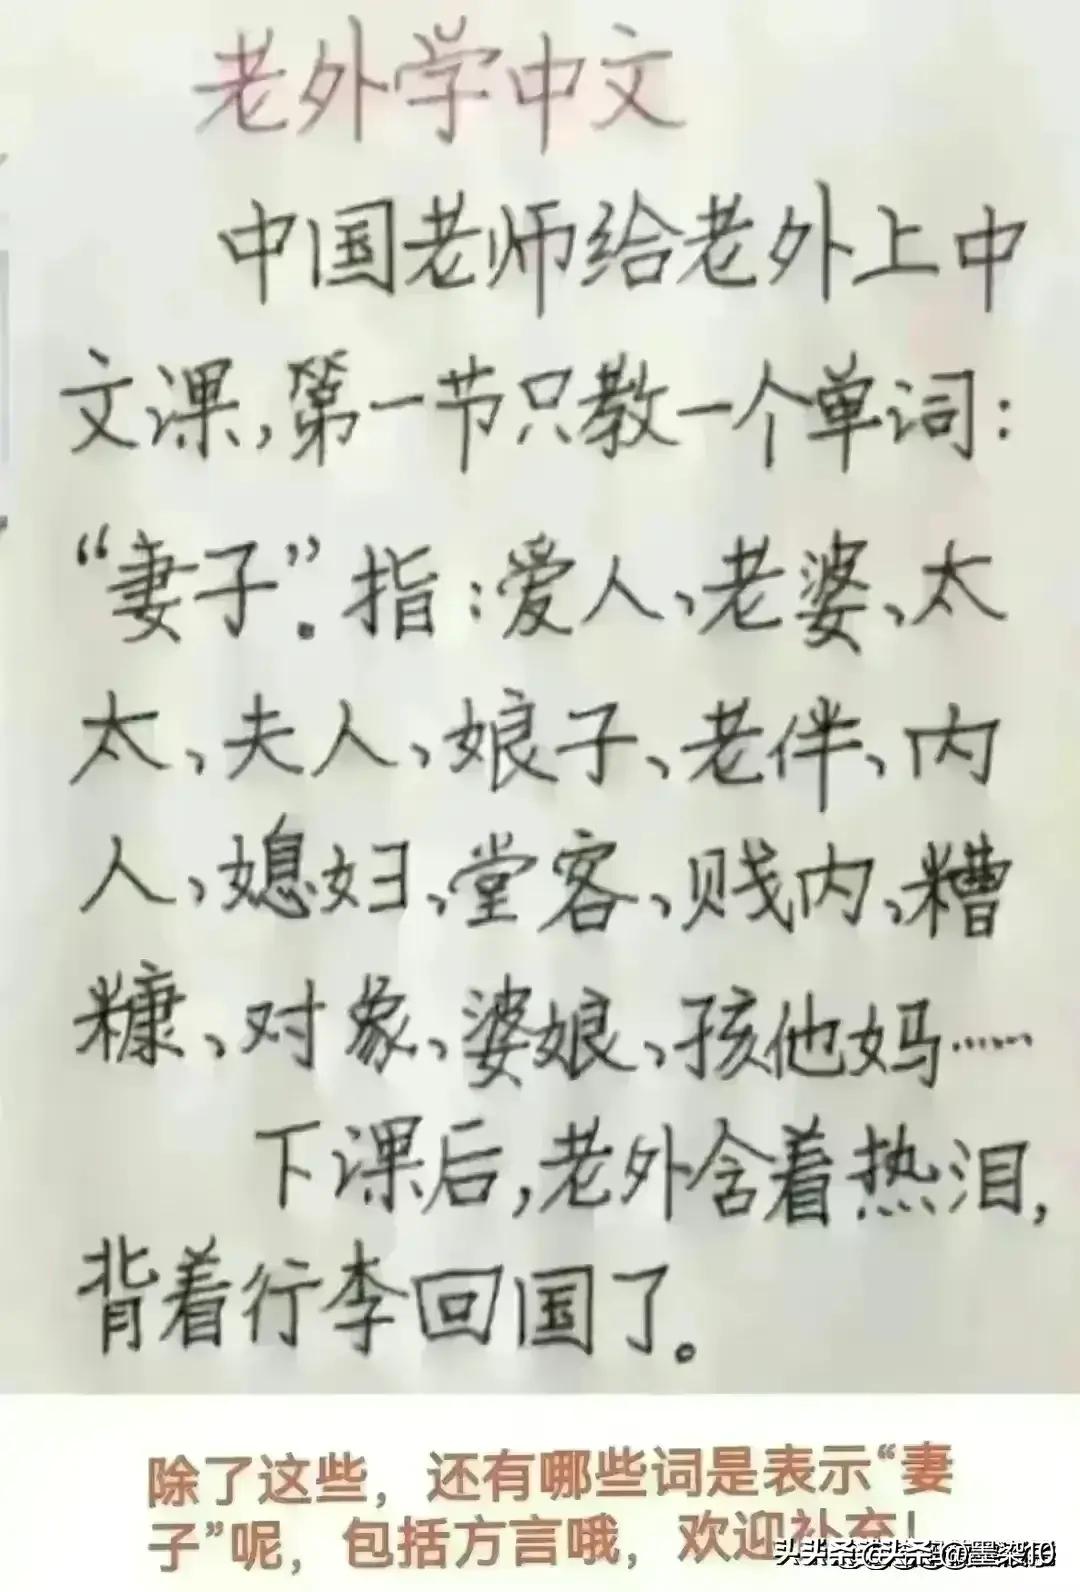 老外学中文
中国老师给老外上中
文课,第一节只教一个单词:
“妻子”。指:爱人、老婆、太
太、夫人、娘子、老伴、内
人、媳妇、堂客、贱内、糟
糠、对象、婆娘、孩他妈……
下课后,老外含着热泪,
背着行李回国了。
除了这些，还有哪些词是表示“妻
子”呢，包括方言哦，欢迎补充！